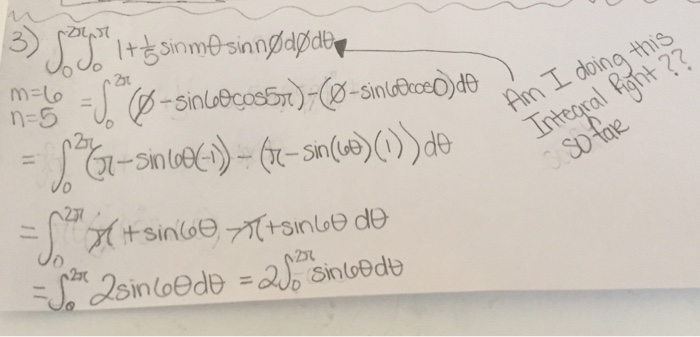 3) ∫₀^2π ∫₀^π 1+⅕ sinmθ sinnø dø dθ
m=6
n=5
= ∫₀^2π (ø-sin6θcos5π)-(ø-sin6θcos0)dθ
= ∫₀^2π (π-sin6θ(-1))-(π-sin(6θ)(1))dθ
= ∫₀^2π π+sin6θ-π+sin6θ dθ
= ∫₀^2π 2sin6θdθ = 2∫₀^2π sin6θdθ
Am I doing this
Integral Right??
so far